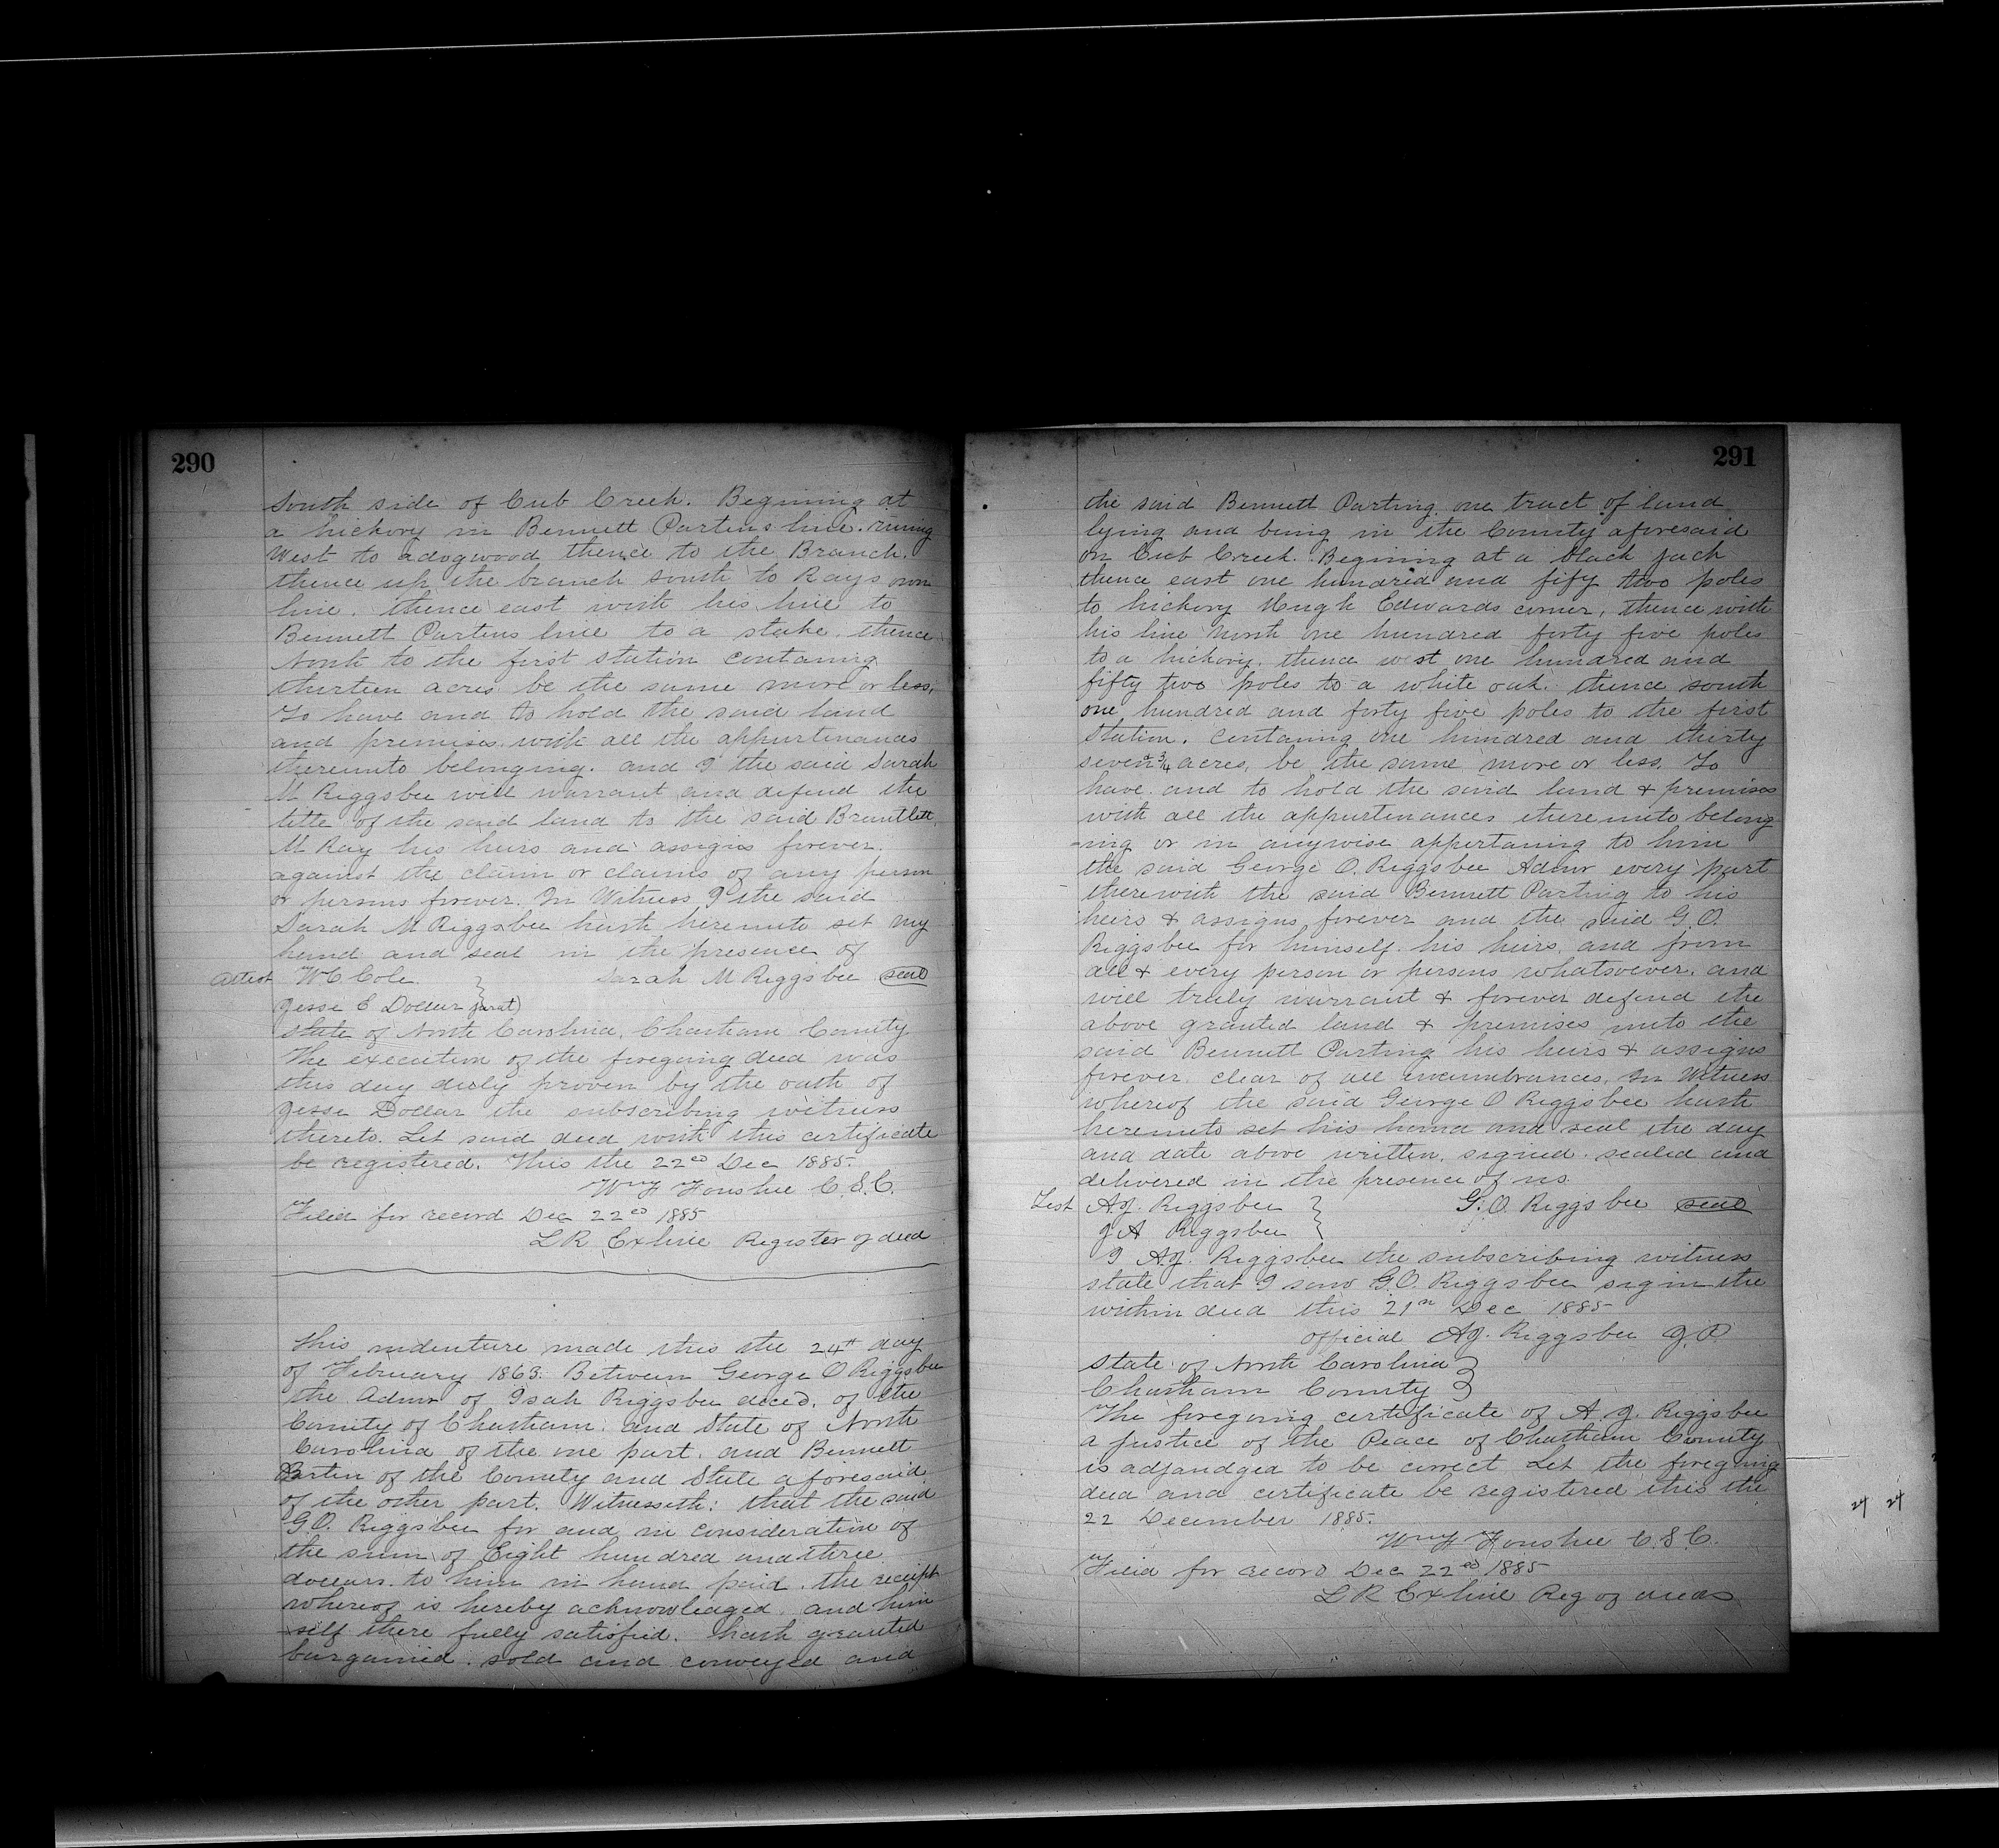 290
South side of Cub Creek. Begining at
a hickory in Bennett Partins line. runing
West to a dogwood thence to the Branch.
thence up the branch South to Rays own
line. thence east with his line to
Bennett Partins line to a stake. thence
North to the first station containg
thirteen acres be the same more or less,
To have and to hold the said land
and premises with all the appurtenances
thereunto belonging. and I the said Sarah
M Riggsbee will warrant and defend the
title of the said land to the said
M Ray his heirs and assigns forever.
against the claim or claims of any person
or persons forever. In Witness I the said
Sarah M Riggsbee hath hereunto set my
hand and seal in the presence of
Attest W C Cole } Sarah M Riggsbee seal
Jesse E Dollar (Jurat)
State of North Carolina, Chatham County
The execution of the foregoing deed was
this day duly proven by the oath of
Jesse Dollar the subscribing witness
thereto. Let said deed with this certificate
be registered. This the 22ed Dec 1885.
Wm F Foushee C.S.C.
Filed for record Dec 22ed 1885
L R Exline Register of deed
This indenture made this the 24th day
of February 1863. Between George O Riggsbee
the Admr of Isah Riggsbee deced. of the
County of Chatham. and State of North
Carolina of the one part. and Bennett
Partin of the County and State aforesaid
of the other part. Witnesseth: that the said
G.O. Riggsbee for and in consideration of
the sum of Eight hundred and three
dollars. to him in hand paid. the receipt
whereof is hereby acknowledged. and him
-self there fully satisfied. hath granted
bargained. sold and conveyed and
291
the said Bennett Parting one tract of land
lying and being in the County aforesaid
on Cub Creek. Begining at a black jack
thence east one hundred and fify two poles
to hickory Hugh Edwards corner, thence with
his line North one hundred forty five poles
to a hickory. thence west one hundred and
fifty two poles to a white oak. thence south
one hundred and forty five poles to the first
Station. Containg one hundred and thirty
seven & 3/4 acres, be the same more or less. To
have and to hold the said land & premises
with all the appurtenances thereunto belong
-ing or in anywise appertaing to him
the said George O. Riggsbee Admr every part
therewith the said Bennett Parting to his
heirs & assigns forever and the said G.O.
Riggsbee for himself. his heirs, and from
all & every person or persons whatsoever. and
will truly warrant & forever defend the
above granted land & premises unto the
said Bennett Parting his heirs & assigns
forever. clear of all incumbrances. In Witness
whereof the said George O Riggsbee hath
hereunto set his hand and seal the day
and date above written. signed. sealed and
delivered in the presence of us.
Test A.J. Riggsbee } G.O. Riggsbee seal
J A Riggsbee
I A.J. Riggsbee the subscribing witness
state that I saw G.O. Riggsbee sign the
within deed this 21st Dec 1885
official A.J. Riggsbee J.P.
State of North Carolina }
Chatham County }
The foregoing certificate of A. J. Riggsbee
a Justice of the Peace of Chatham County
is adjandged to be correct Let the foregoing
deed and certificate be registered this the
22 December 1885.
Wm F Foushee C.S.C.
Filed for record Dec 22ed 1885
L R Exline Reg of deeds
24 24